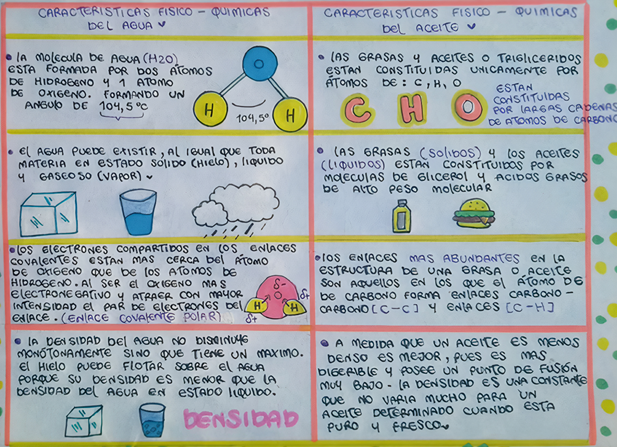 CARACTERISTICAS FISICO - QUIMICAS
DEL AGUA
LA MOLECULA DE AGUA (H2O)
ESTA FORMADA POR DOS ATOMOS
DE HIDROGENO Y 1 ATOMO
DE OXIGENO. FORMANDO UN
ANGULO DE 104,5°C
O
H
H
104,5°
EL AGUA PUEDE EXISTIR, AL IGUAL QUE TODA
MATERIA EN ESTADO SOLIDO (HIELO), LIQUIDO
Y GASEOSO (VAPOR)
LOS ELECTRONES COMPARTIDOS EN LOS ENLACES
COVALENTES ESTAN MAS CERCA DEL ATOMO
DE OXIGENO QUE DE LOS ATOMOS DE
HIDROGENO. AL SER EL OXIGENO MAS
ELECTRONEGATIVO Y ATRAER CON MAYOR
INTENSIDAD EL PAR DE ELECTRONES DEL
ENLACE. (ENLACE COVALENTE POLAR)
δ-
O
H
H
δ+
δ+
LA DENSIDAD DEL AGUA NO DISMINUYE
MONÓTONAMENTE SINO QUE TIENE UN MAXIMO.
EL HIELO PUEDE FLOTAR SOBRE EL AGUA
PORQUE SU DENSIDAD ES MENOR QUE LA
DENSIDAD DEL AGUA EN ESTADO LIQUIDO.
DENSIDAD
CARACTERISTICAS FISICO - QUIMICAS
DEL ACEITE
LAS GRASAS Y ACEITES O TRIGLICERIDOS
ESTAN CONSTITUIDAS UNICAMENTE POR
ATOMOS DE: C, H, O
C H O
ESTAN
CONSTITUIDAS
POR LARGAS CADENAS
DE ATOMOS DE CARBONO
LAS GRASAS (SOLIDOS) Y LOS ACEITES
(LIQUIDOS) ESTAN CONSTITUIDOS POR
MOLECULAS DE GLICEROL Y ACIDOS GRASOS
DE ALTO PESO MOLECULAR
LOS ENLACES MAS ABUNDANTES EN LA
ESTRUCTURA DE UNA GRASA O ACEITE
SON AQUELLOS EN LOS QUE EL ATOMO DE
DE CARBONO FORMA ENLACES CARBONO-
CARBONO [C-C] Y ENLACES [C-H]
A MEDIDA QUE UN ACEITE ES MENOS
DENSO ES MEJOR, PUES ES MAS
DIGERIBLE Y POSEE UN PUNTO DE FUSIÓN
MUY BAJO. LA DENSIDAD ES UNA CONSTANTE
QUE NO VARIA MUCHO PARA UN
ACEITE DETERMINADO CUANDO ESTA
PURO Y FRESCO